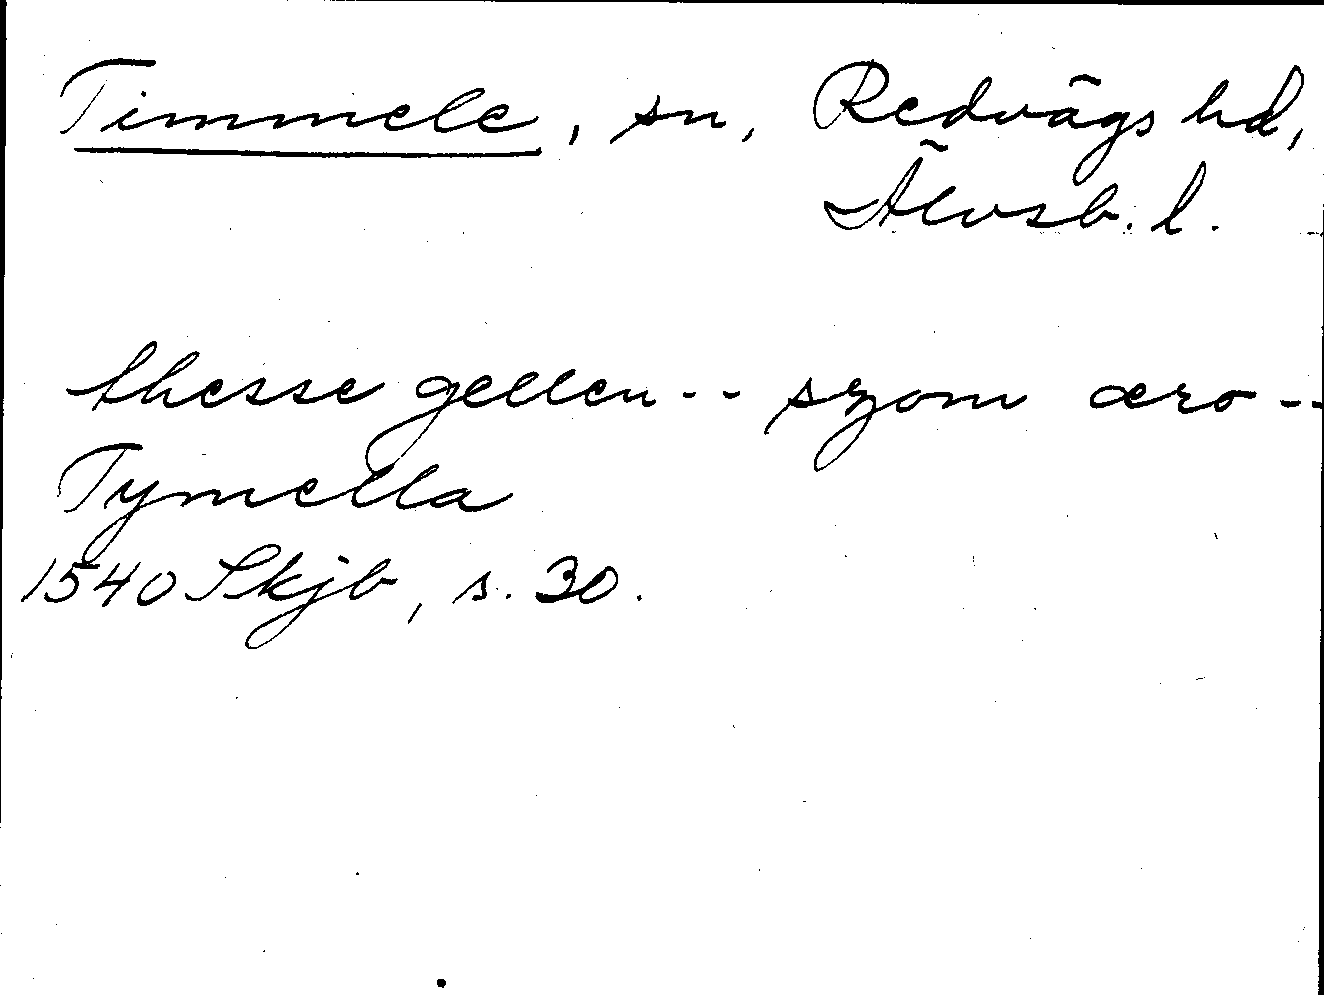 Timmele, sn, Redvägs hd,
Älvsb. l.
thesse gellen -- szom æro --
Tymella
1540 Skjb, s. 30.